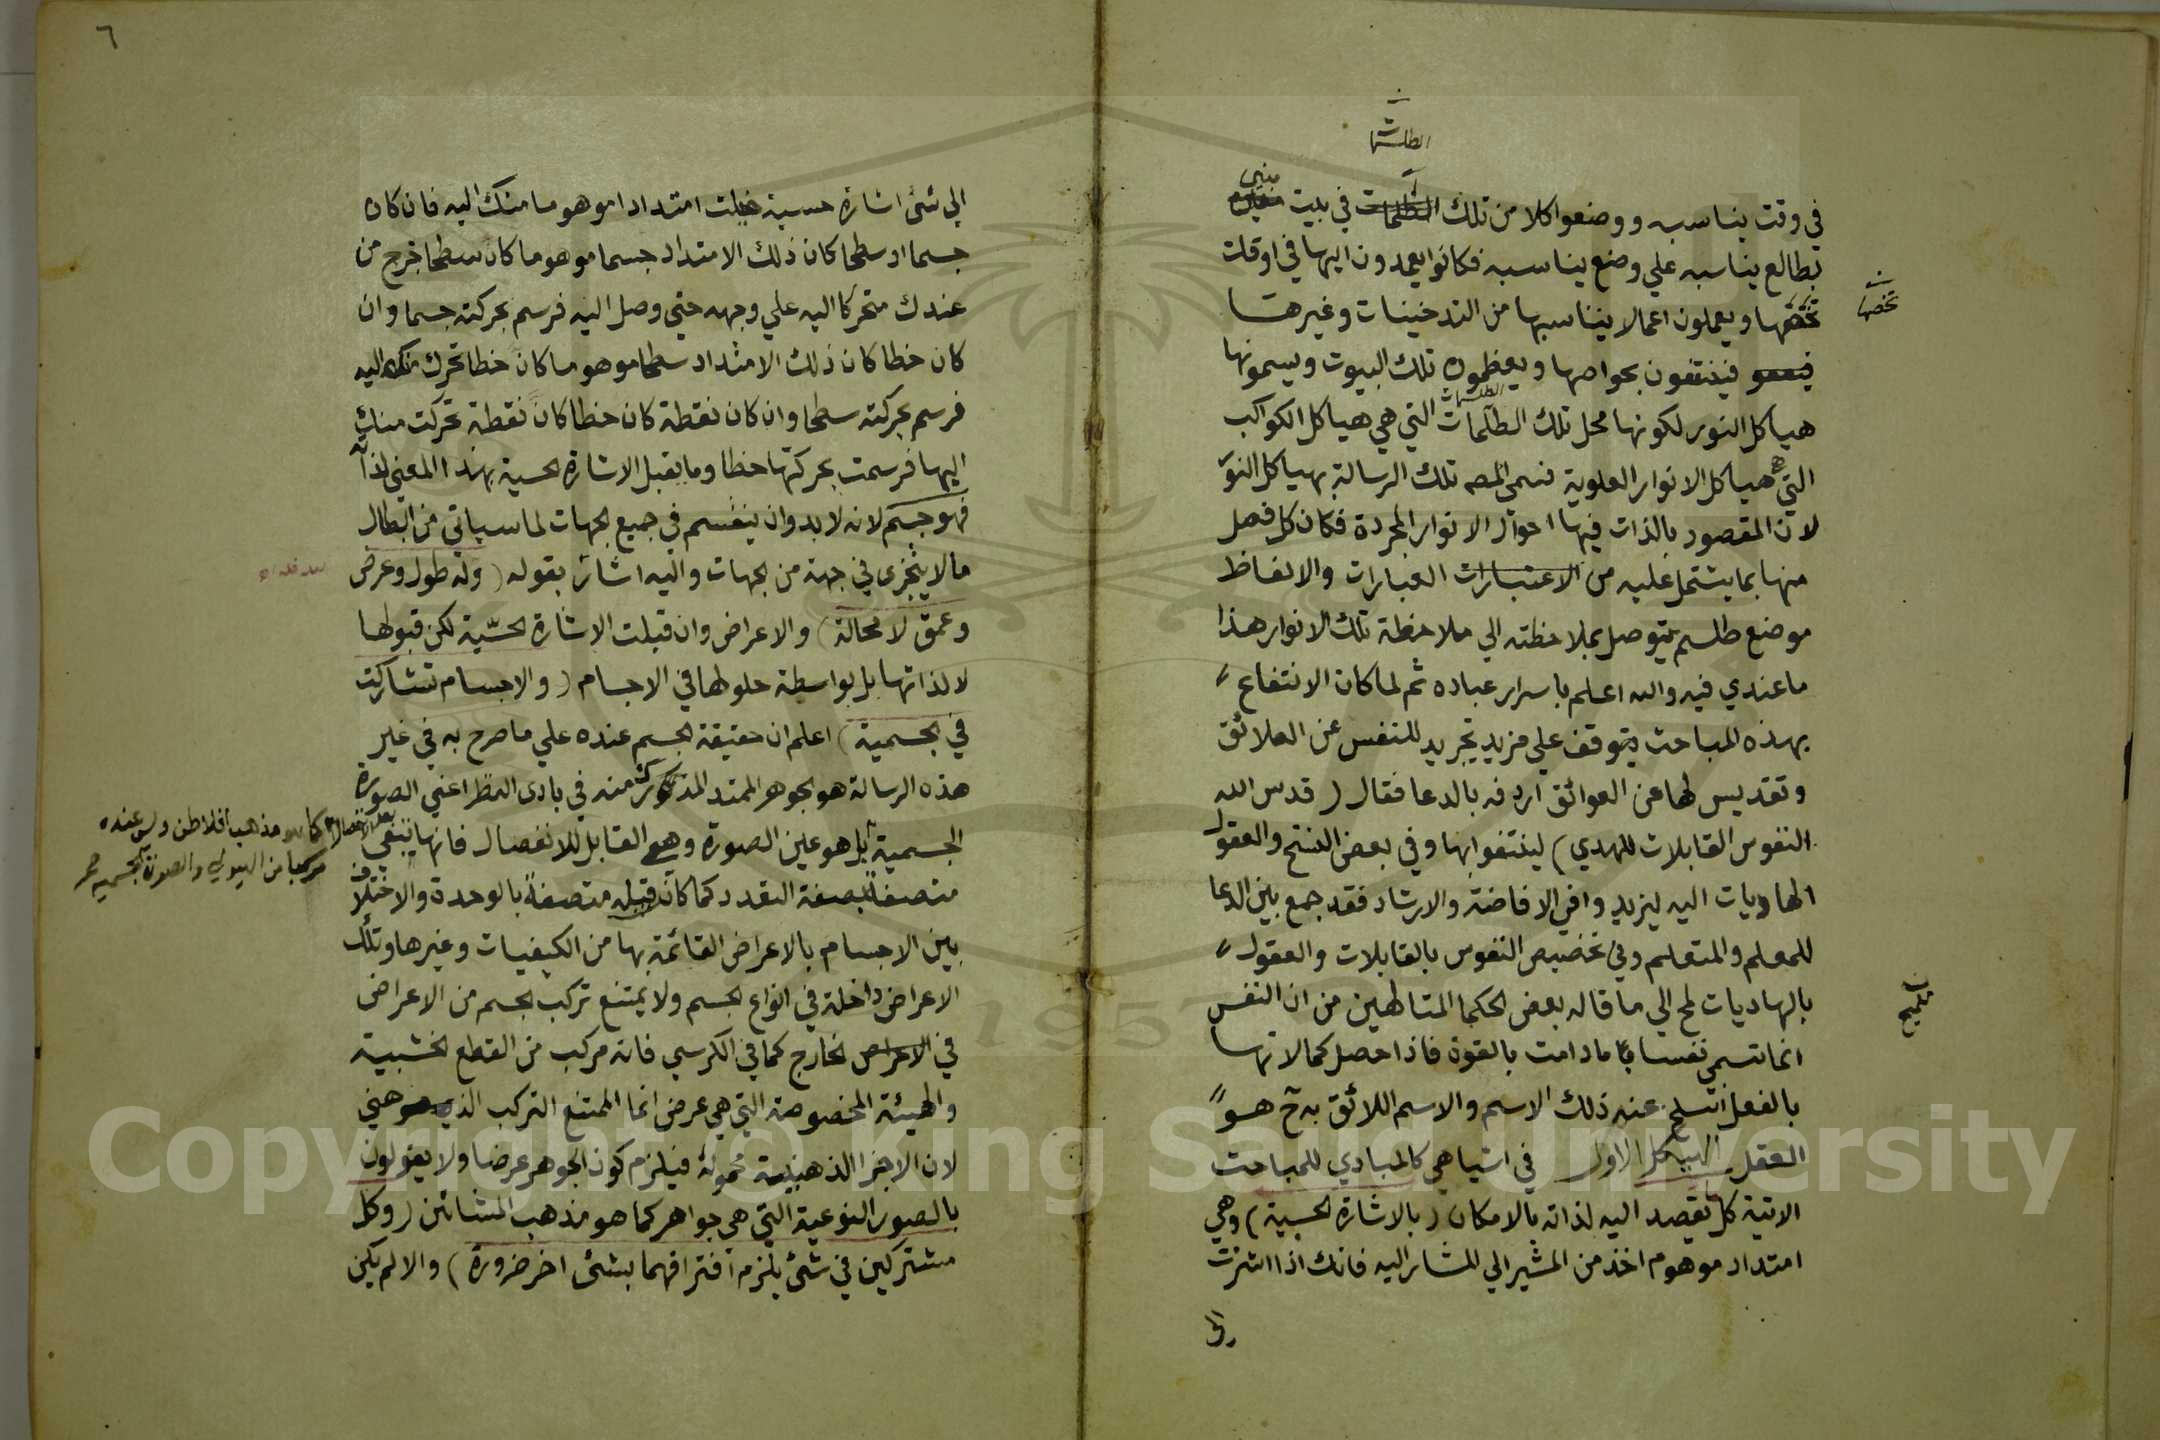 الطلسمات
في وقت يناسبه ووضعوا كلا من تلك الطلسمات في بيت مبني
بطالع يناسبه علي وضع يناسبه فكانوا يعمدون اليها في اوقات
تخصها ويعملون اعمالا يناسبها من التدخينات وغيرهـا
تخصها
فينتفعون بخواصها ويعظمون تلك البيوت ويسمونها
هياكل النور لكونها محل تلك الطلسمات التي هي هياكل الكواكب
التي هي هياكل الانوار العلوية فسمي المص تلك الرسالة بهياكل النور
لان المقصود بالذات فيها احوال الانوار المجردة فكان كل فصل
منها بما يشتمل عليه من الاعتبارات العبارات والالفاظ
موضع طلسم يتوصل بملاحظته الي ملاحظة تلك الانوار هذا
ما عندي فيه والله اعلم باسرار عباده ثم لما كان الانتفاع
بهذه المباحث يتوقف علي مزيد تجريد للنفس عن العلائق
وتقديس لها عن العوائق اردفه بالدعا فقال ( قدس الله
النفوس القابلات للهدي ) لينتفعوا بها وفي بعض النسخ والعقول
الهاديات اليه ليزيدوا في الافاضة والارشاد فقد جمع بين الدعا
للمعلم والمتعلم وفي تخصيص النفوس بالقابلات والعقول
بالهاديات لمح الي ما قاله بعض الحكما المتالهين من ان النفس
تلميح
انما تسمي نفسا ما دامت بالقوة فاذا حصل كمالاتها
بالفعل انسلخ عنه ذلك الاسم والاسم اللائق به ح هو
العقل الهيكل الاول في اشيا هي كالمبادي للمباحث
الاتية كل ما يقصد اليه لذاته بالامكان ( بالاشارة الحسية ) وهي
امتداد موهوم اخذ من المشير الي المشار اليه فانك اذا اشرت
الى
٦
الي شئ اشارة حسية خيلت امتدادا موهوما منك اليه فان كان
جسما او سطحا كان ذلك الامتداد جسما موهوما كان سطحا خرج من
عندك متحركا اليه علي وجهه حتي وصل اليه فرسم بحركته جسما وان
كان خطا كان ذلك الامتداد سطحا موهوما كان خطا تحرك منك اليه
فرسم بحركته سطحا وان كان نقطة كان خطا كان نقطة تحركت منك
اليها فرسمت بحركتها خطا وما يقبل الاشارة الحسية بهذا المعني لذاته
فهو جسم لانه لا بد وان ينقسم في جميع الجهات لما سياتي من ابطال
ما لا يتجزي في جهة من الجهات واليه اشار بقوله ( وله طول وعرض
وعمق لا محالة ) والاعراض وان قبلت الاشارة الحسّية لكن قبولها
لا لذاتها بل بواسطة حلولها في الاجسام ( والاجسام تشاركت
في الجسمية ) اعلم ان حقيقة الجسم عنده علي ما صرح به في غير
هذه الرسالة هو الجوهر الممتد المدرك منه في بادي النظر اعني الصورة
الجسمية بل هو عين الصورة وهو القابل للانفصال فانها تبقي بعد الانفصال
كما هو مذهب افلاطن وليس عنده
مركبا من الهيولي والصورة الجسمية صح
متصفة بصفة التعدد كما كان قبله متصفة بالوحدة والاختلاف
بين الاجسام بالاعراض القائمة بها من الكيفيات وغيرها وتلك
الاعراض داخلة في انواع الجسم ولا يمتنع تركب الجسم من الاعراض
في الاعراض الخارج كما في الكرسي فانه مركب من القطع الخشبية
والهيئة المخصوصة التي هي عرض انما الممتنع التركب الذهني
لان الاجزا الذهنية محمولة فيلزم كون الجوهر عرضا ولا يقولون
بالصور النوعية التي هي جواهر كما هو مذهب المشائين ( وكل
مشتركين في شئ يلزم افتراقهما بشئ اخر ضرورة ) والا لم يكن
Copyright © King Saud University
1957